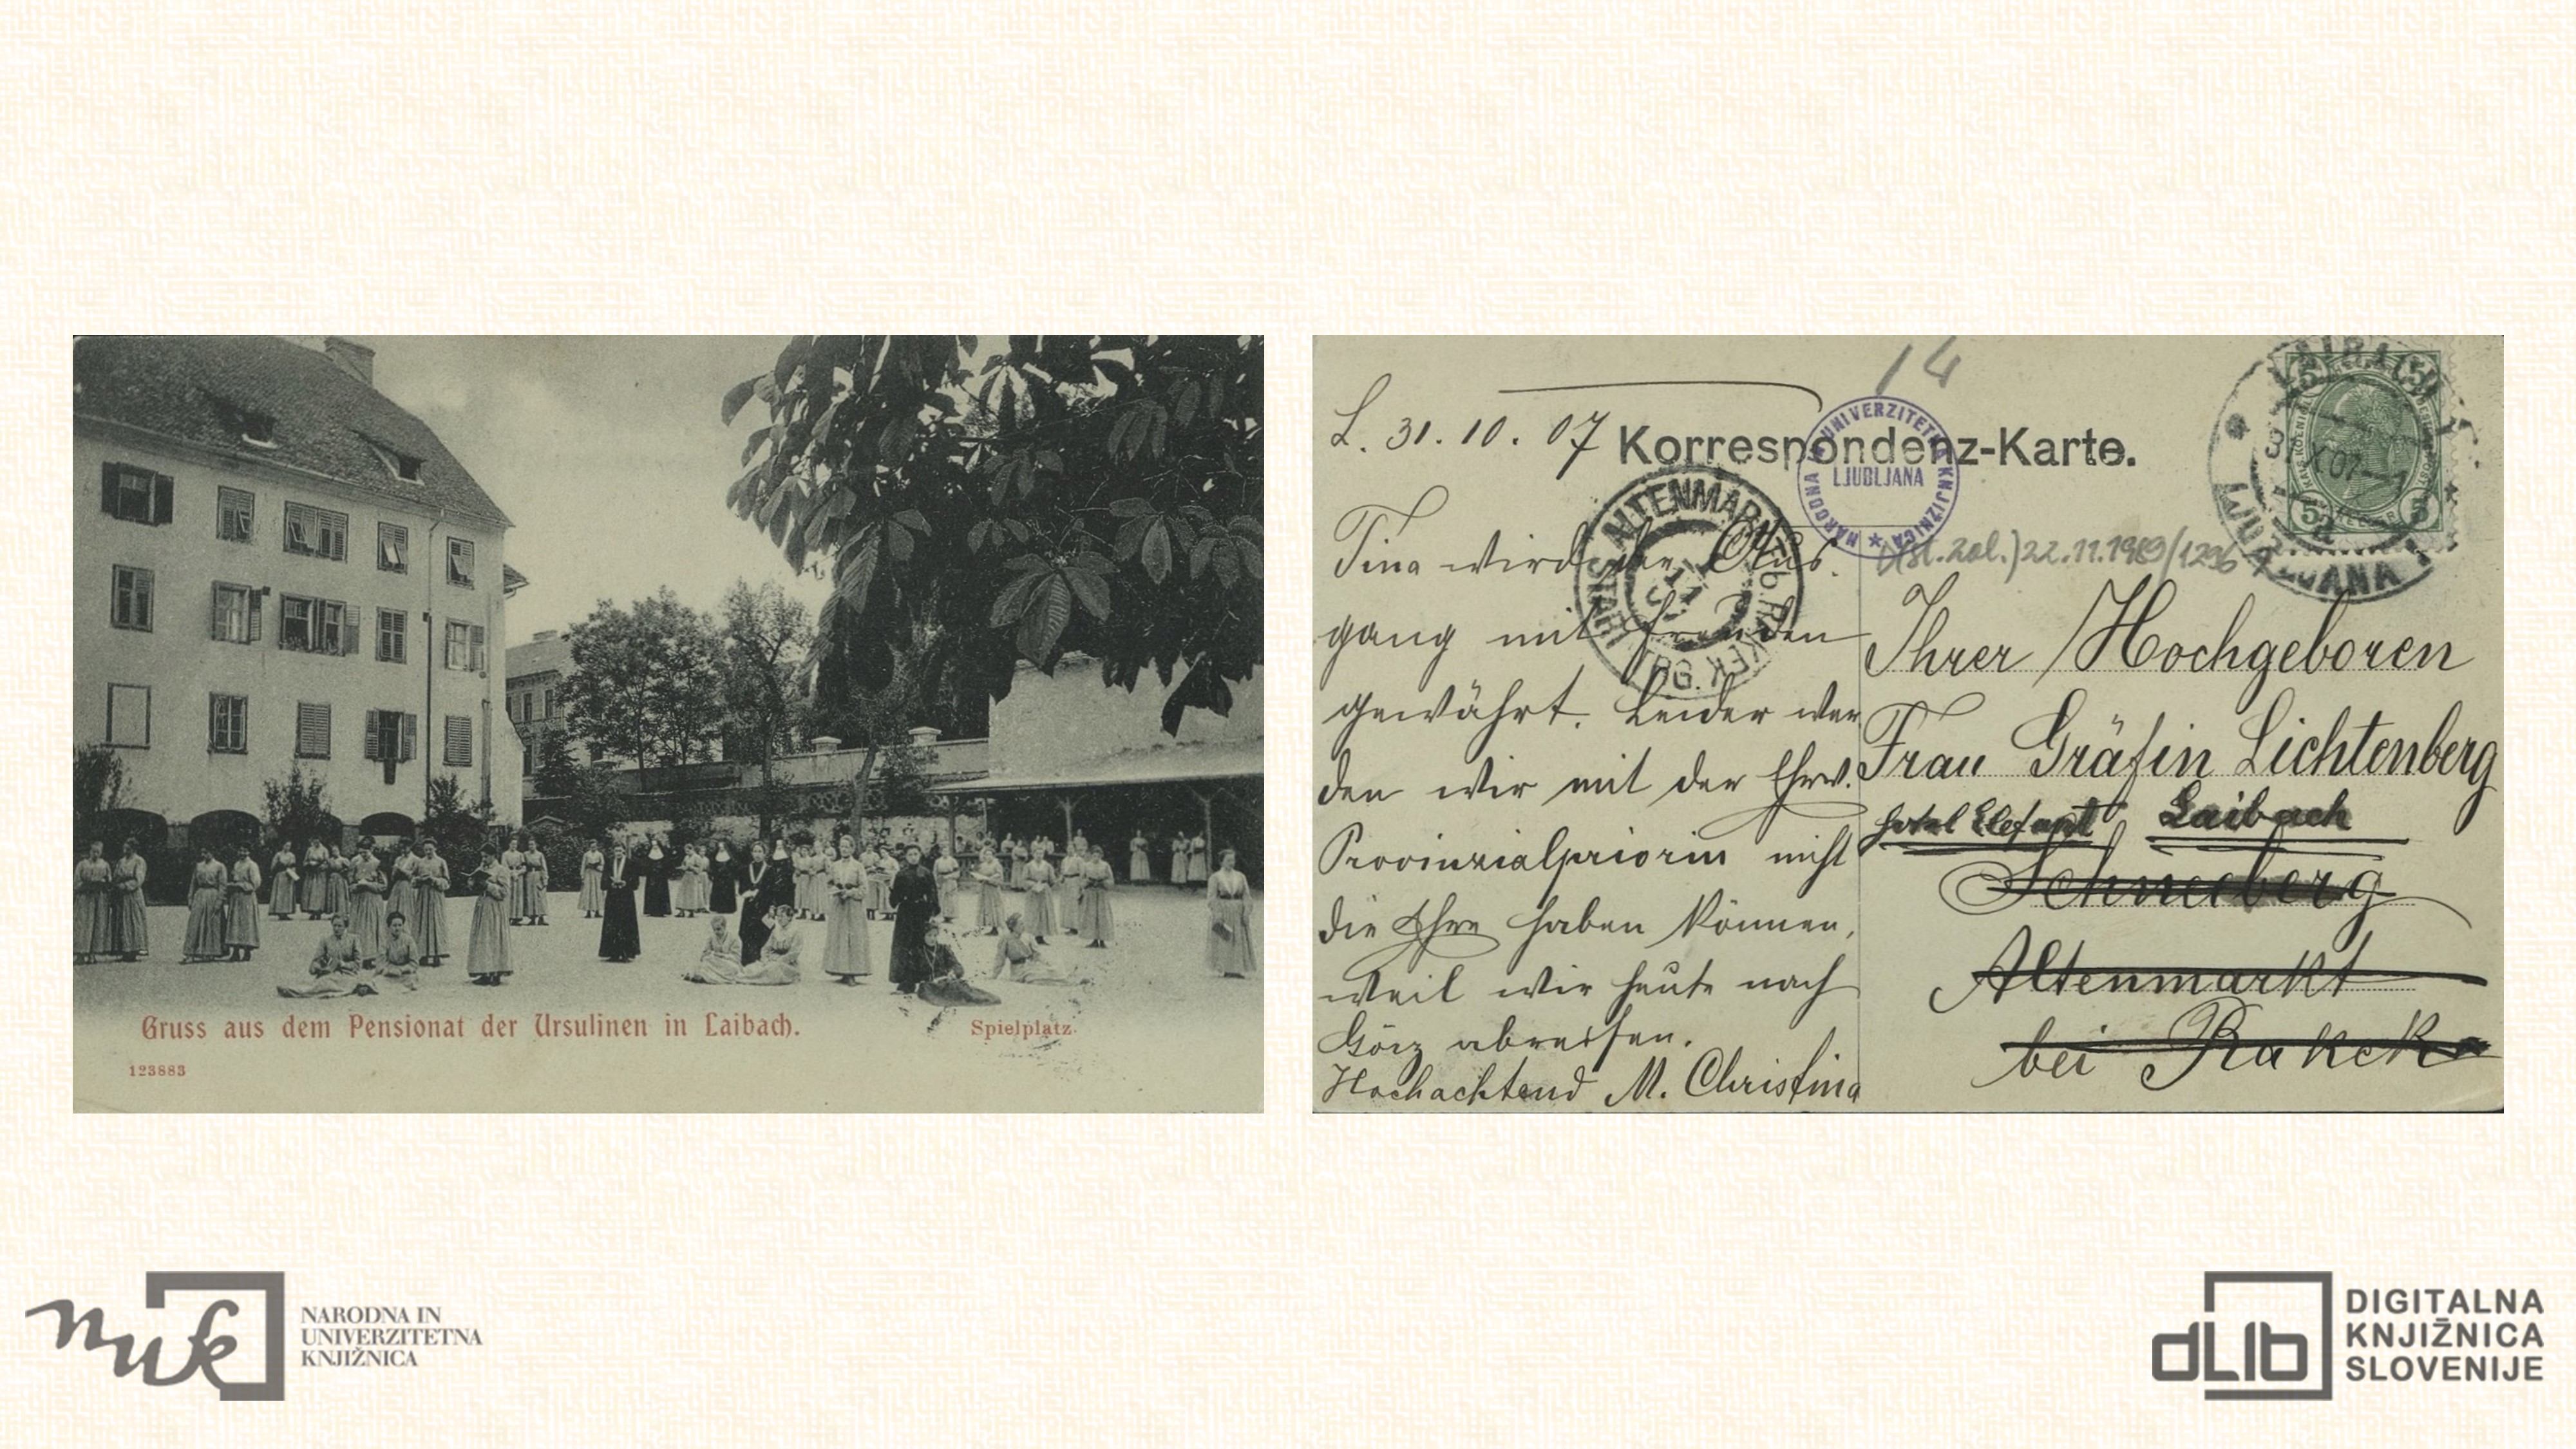 Gruss aus dem Pensionat der Ursulinen in Laibach.
Spielplatz.
123883
14
L. 31. 10. 07
Korrespondenz-Karte.
NARODNA UNIVERZITETNA KNJIŽNICA
LJUBLJANA
LAIBACH
31 X 07
LJUBLJANA
5
5
5
5
ALTENMARKT b. RAKEK
22.11.1969/1296
Tina wird der Aus-
gang mit Freuden
gewährt. Leider wer
den wir mit der Ehrw.
Provinzialpriorin nicht
die Ehre haben können,
weil wir heute nach
Görz abreisen.
Hochachtend M. Christina
Ihrer Hochgeboren
Frau Gräfin Lichtenberg
Hotel Elefant Laibach
Schneeberg
Altenmarkt
bei Rakek
nuk
NARODNA IN
UNIVERZITETNA
KNJIŽNICA
dLib
DIGITALNA
KNJIŽNICA
SLOVENIJE